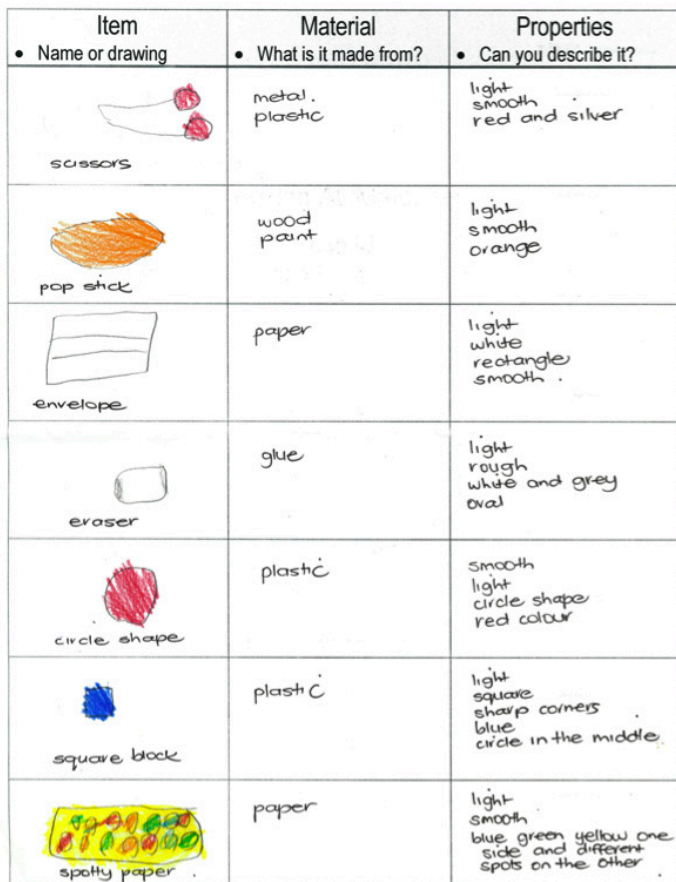 Item
• Name or drawing
Material
• What is it made from?
Properties
• Can you describe it?
scissors
metal.
plastic
light
smooth
red and silver
pop stick
wood
paint
light
smooth
orange
envelope
paper
light
white
rectangle
smooth.
eraser
glue
light
rough
white and grey
oval
circle shape
plastic
smooth
light
circle shape
red colour
square block
plastic
light
square
sharp corners
blue
circle in the middle.
spotty paper
paper
light
smooth
blue green yellow one
side and different
spots on the other